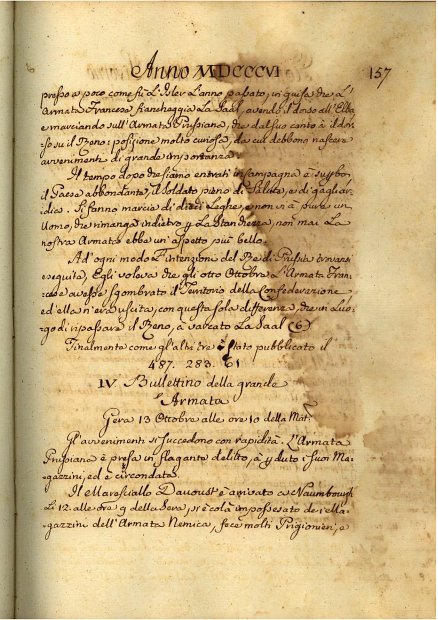 Anno MDCCCVI 157
presso a poco come fù l'Isler l'anno passato, in guisa che l'
Armata Francese fiancheggia La Saal, avendo il dorso all'Elba
e marciando sull'Armata Prussiana, che dal suo canto à il dor-
so su il Reno: posizione molto curiosa, da cui debbono nascere
avvenimenti di grande importanza.
Il tempo dopo che siamo entrati in campagna è superbo,
il Paese abbondante, il Soldato pieno di Salute, e di gagliar-
dia. Si fanno marcie di dieci Leghe, e non v'à pure un
Uomo, che rimanga indietro p La Stanchezza, non mai La
nostra Armata ebbe un'aspetto più bello.
Ad ogni modo l'intenzioni del Re di Prussia trovansi
eseguite, Egli voleva che gli otto Ottobre L'Armata Fran-
cese avesse sgombrato il Territorio della Confederazione
ed ella n'era uscita, con questa sola differenza, che in Luo-
go di ripassare il Reno, à varcato La Saal (6)
Finalmente come gl'altri tre è stato pubblicato il
487. 283. 61
IV Bullettino della grande
Armata
Gera 13 Ottobre alle ore 10 della Matt:
Gl'avvenimenti si succedono con rapidità. L'Armata
Prussiana è presa in flagante delitto, à p.duto i suoi Ma-
gazzini, ed è circondata.
Il Maresciallo Davoust è arrivato a Naumbourgh
Li 12. alle ore 9 della Sera, si è colà impossesato de i Ma-
gazzini dell'Armata Nemica, fece molti Prigionieri, e